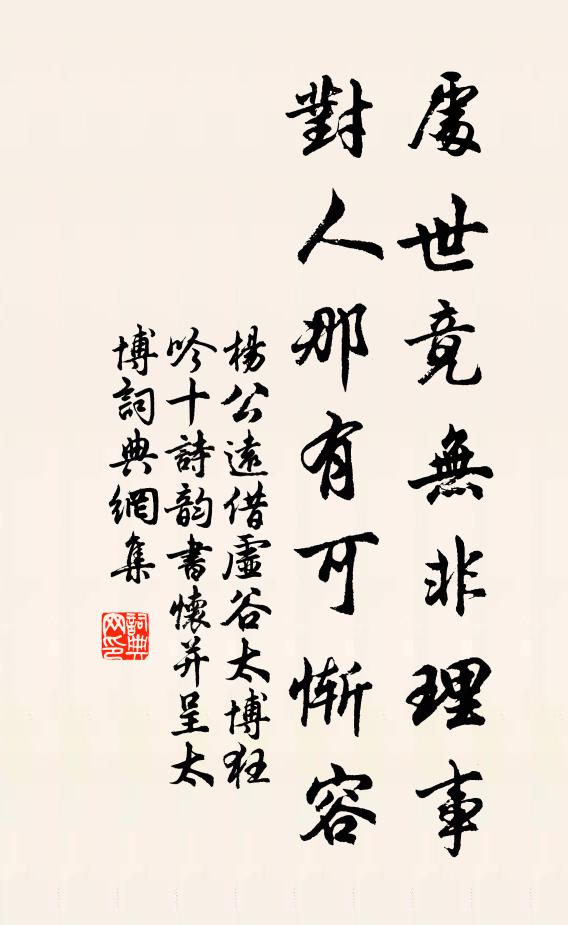 處世竟無非理事
對人那有可慚容
楊公遠借虛谷太博狂
吟十詩韵書懷并呈太
博詞典網集
詞典
网印